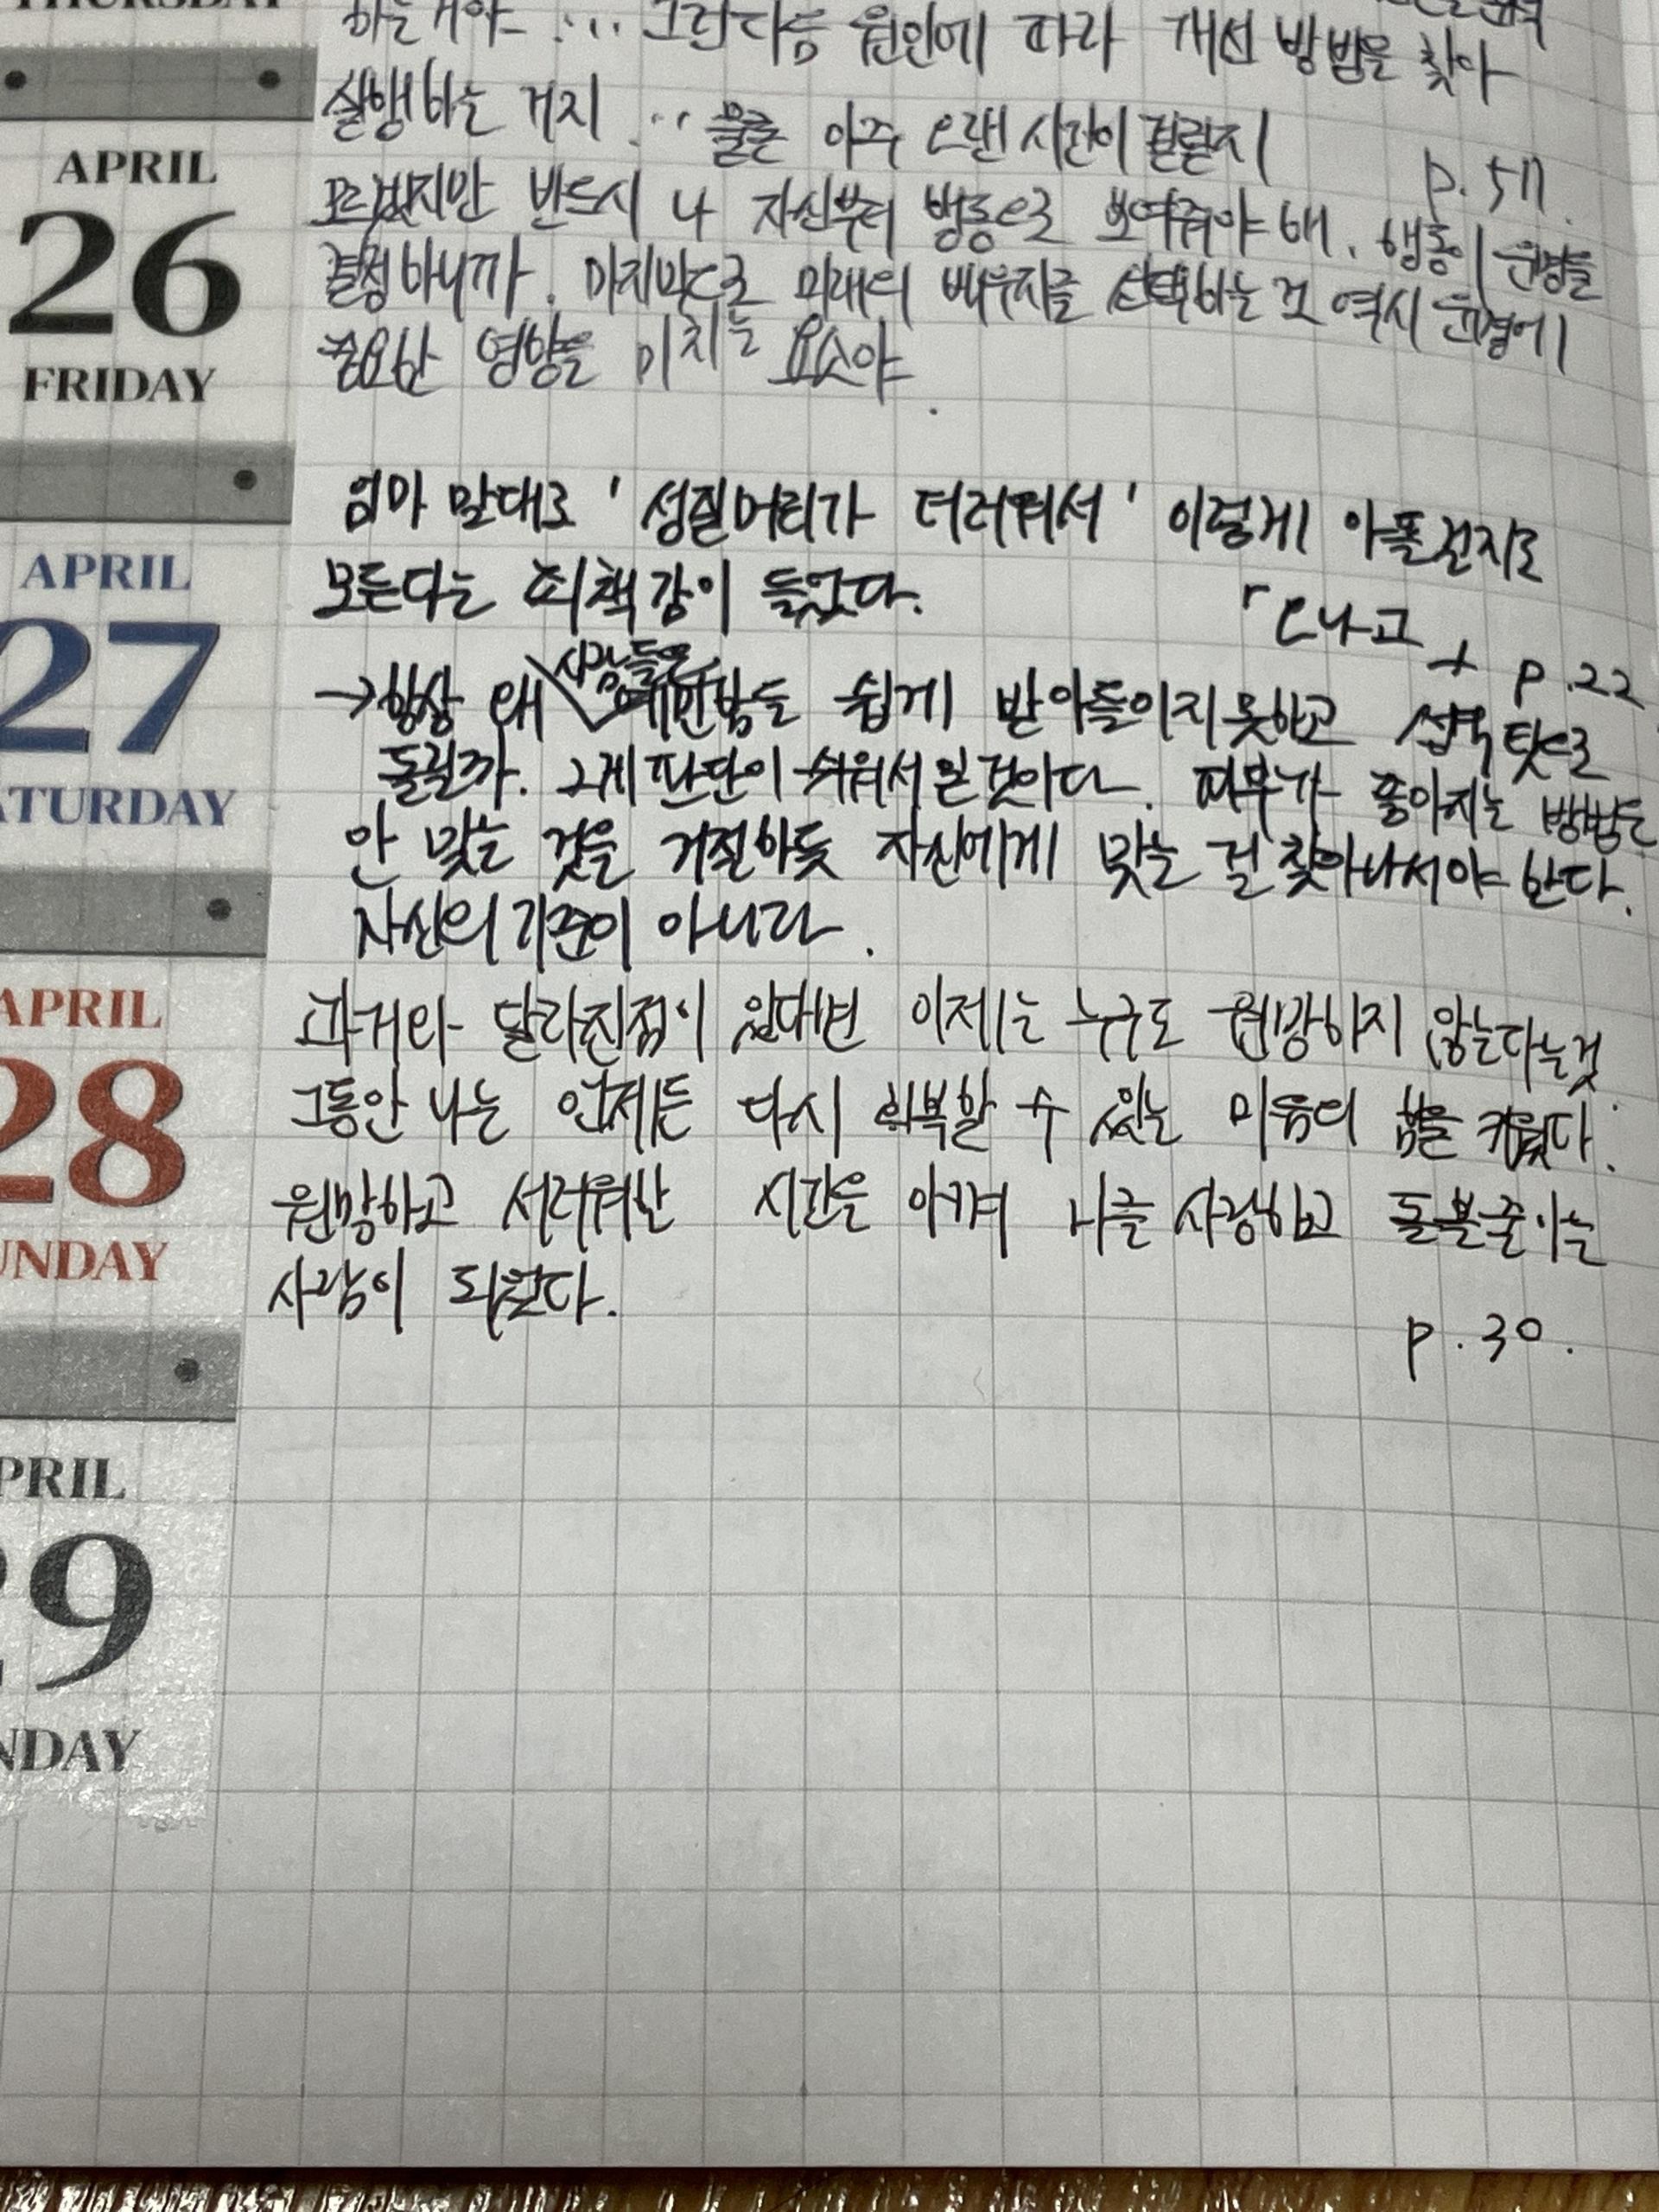 THURSDAY
하는거야 … 그런다음 원인에 따라 개선 방법을 찾아
실행하는 거지 … 물론 아주 오랜 시간이 걸릴지
p. 511.
APRIL
26
FRIDAY
모르겠지만 반드시 나 자신부터 행동으로 보여줘야 해. 행동이 운명을
결정하니까. 마지막으로 미래의 배우자를 선택하는 것 역시 운명에
중요한 영향을 미치는 요소야.
엄마 말대로 '성질머리가 더러워서' 이렇게 아플건지도
모른다는 죄책감이 들었다.
p.22
APRIL
27
SATURDAY
→항상 왜 사람들은 예민함을 쉽게 받아들이지못하고 성격 탓으로
돌릴까. 그게 판단이 쉬워서 일 것이다. 피부가 좋아지는 방법은
안 맞는 것을 거절하듯 자신에게 맞는 걸 찾아나서야 한다.
자신의 기준이 아니라.
APRIL
28
SUNDAY
과거와 달라진점이 있다면 이제는 누구도 원망하지 않는다는것.
그동안 나는 언제든 다시 회복할 수 있는 마음의 힘을 키웠다.
원망하고 서러워한 시간을 아껴 나를 사랑하고 돌볼줄아는
사람이 되었다.
p.30.
APRIL
29
MONDAY